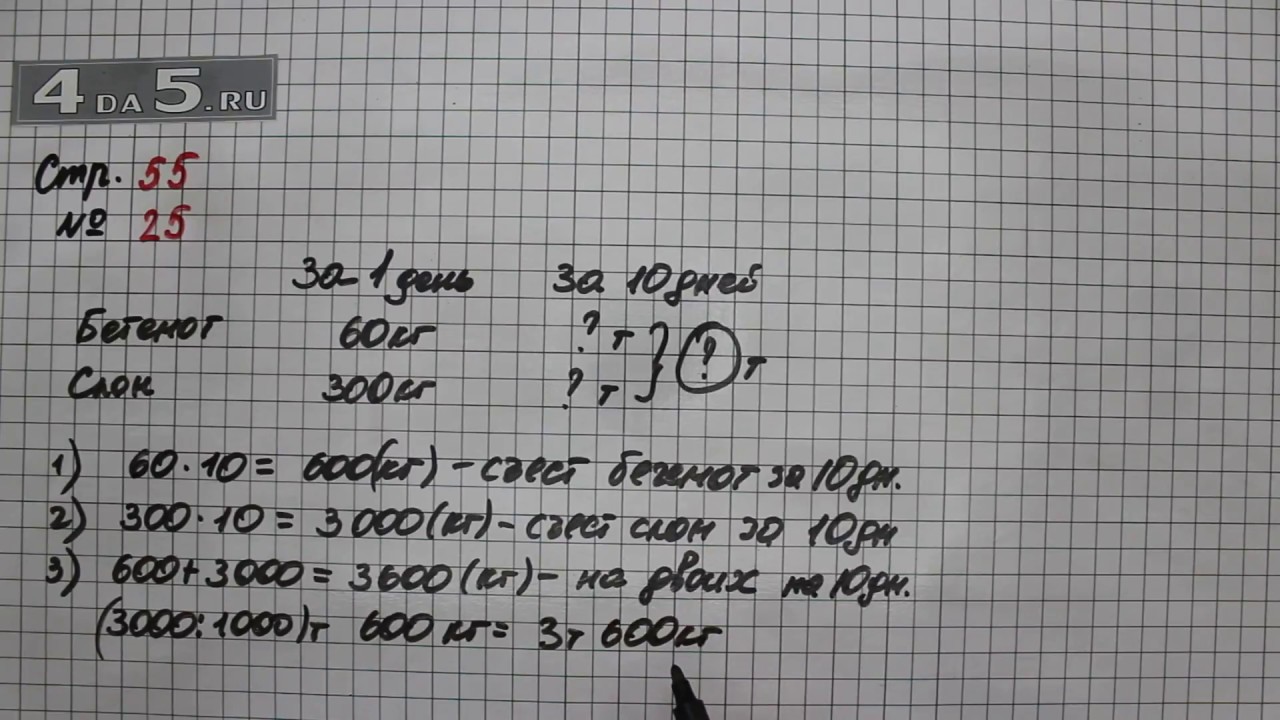 4 DA 5.RU
Стр. 55
№ 25
За 1 день За 10 дней
Бегемот 60кг ? т } ? т
Слон 300кг ? т
1) 60·10 = 600(кг) – съест бегемот за 10 дн.
2) 300·10 = 3000(кг) – съест слон за 10 дн
3) 600+3000 = 3600(кг) – на двоих на 10 дн.
(3000:1000)т 600 кг = 3т 600кг